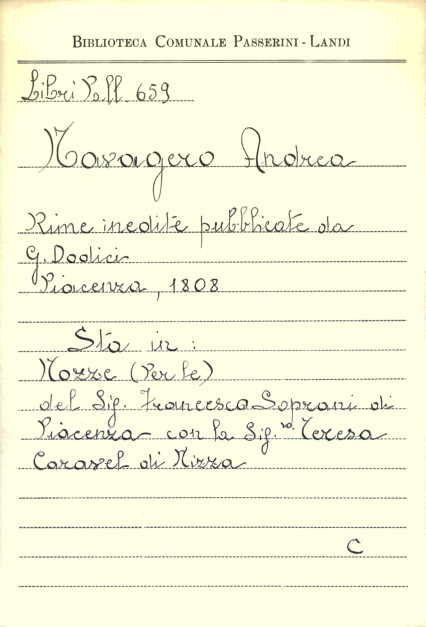 BIBLIOTECA COMUNALE PASSERINI - LANDI
Libri Pall. 659
Navagero Andrea
Rime inedite pubblicate da
G. Dodici
Piacenza, 1808
Sta in:
Nozze (Per le)
del Sig. Francesco Soprani di
Piacenza con la Sig.ra Teresa
Caravel di Nizza
C